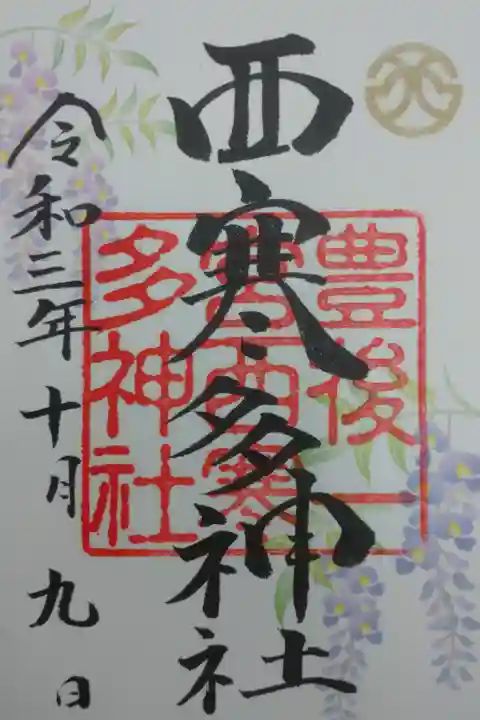 西寒多神社
豊後一
宮西寒
多神社
令和三年十月九日